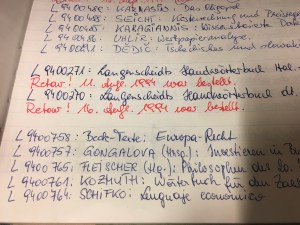 L 9400488: KARNASIN: Das
L 9400489: SEICHT: Kostenrechnung und Preisge
L 9400485: KARAGIANNIS: Wissensbasierte Date
L 9400478: UHLIR: Wertpapieranalyse.
DEDIC: Tschechisches und slowaki
L 9400271: Langenscheidts Handwörterbuch Ital.-
Retour! 11. Aufl. 1994 war bestellt.
L 9400270: Langenscheidts Handwörterbuch dt.
Retour! 16. Aufl. 1994 war bestellt.
L 9400758: Beck-Texte: Europa-Recht
L 9400757: GONGALOVA (Hrsg.): Investieren in
L 9400765: FLEISCHER (Hg.): Philosophen des 20.
L 9400761: KOZMUTH: Wörterbuch für den
L 9400764: SCHIFKO: Lenguaje económico